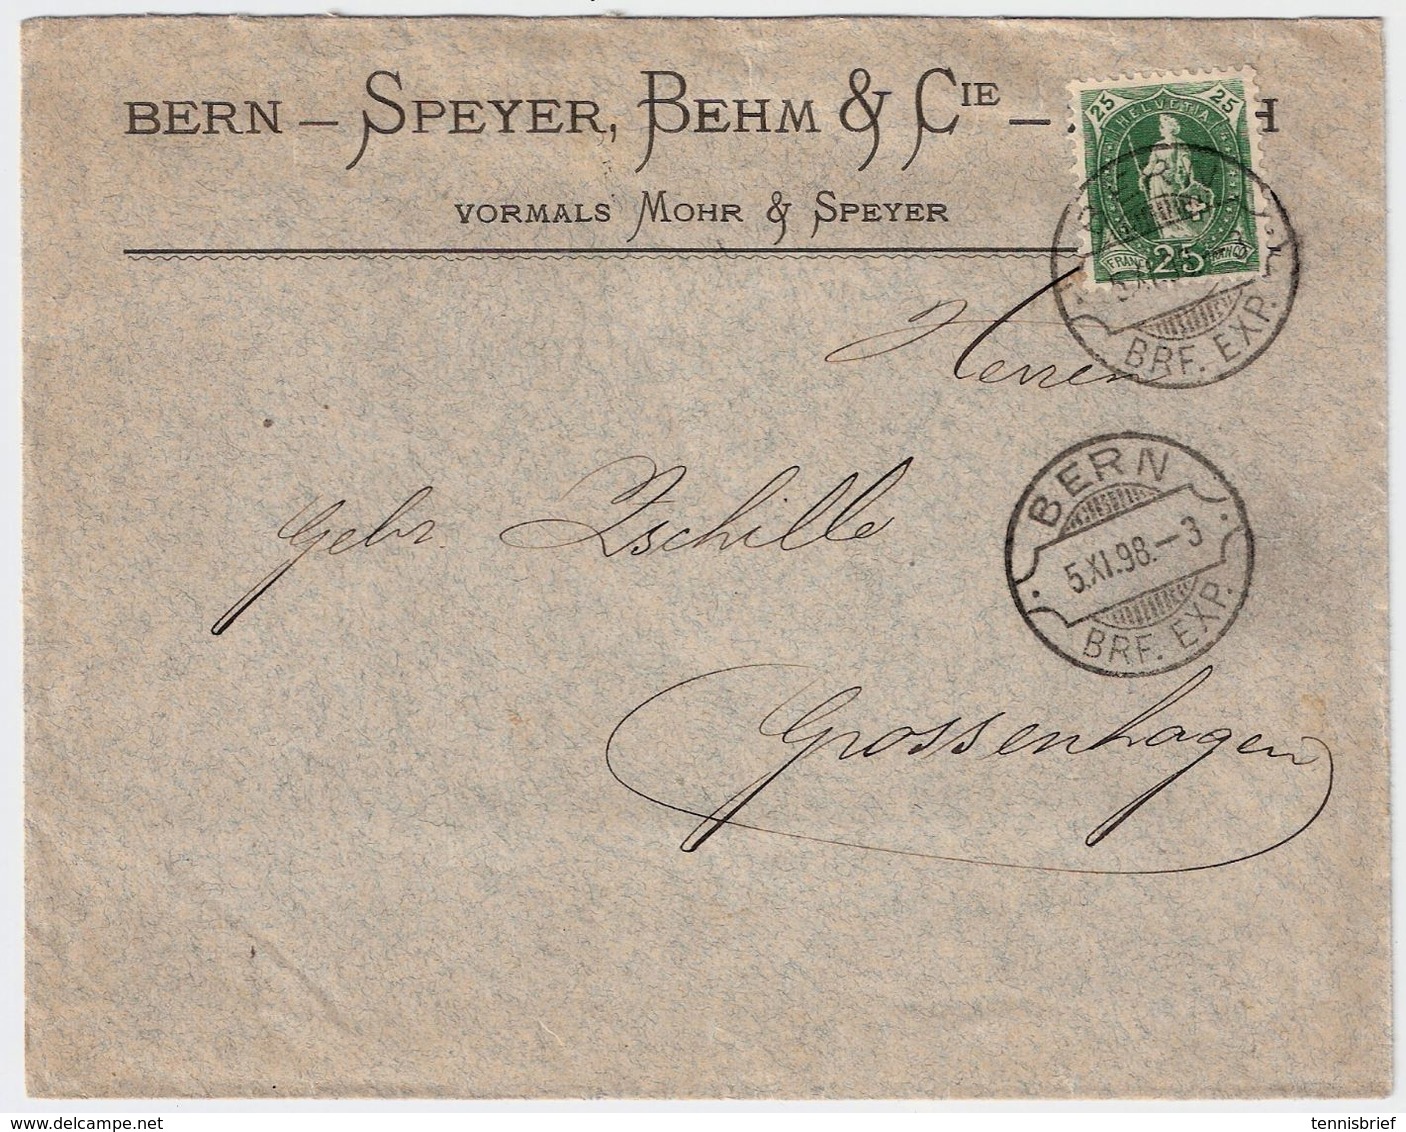 BERN – SPEYER, BEHM & CIE – H
VORMALS MOHR & SPEYER
25 HELVETIA 25
FRANCO 25 FRANCO
BRF. EXP.
Herren
Gebr. Zschille
BERN
5.XI.98.–3
BRF. EXP.
Grossenhagen
www.delcampe.net
tennisbrief